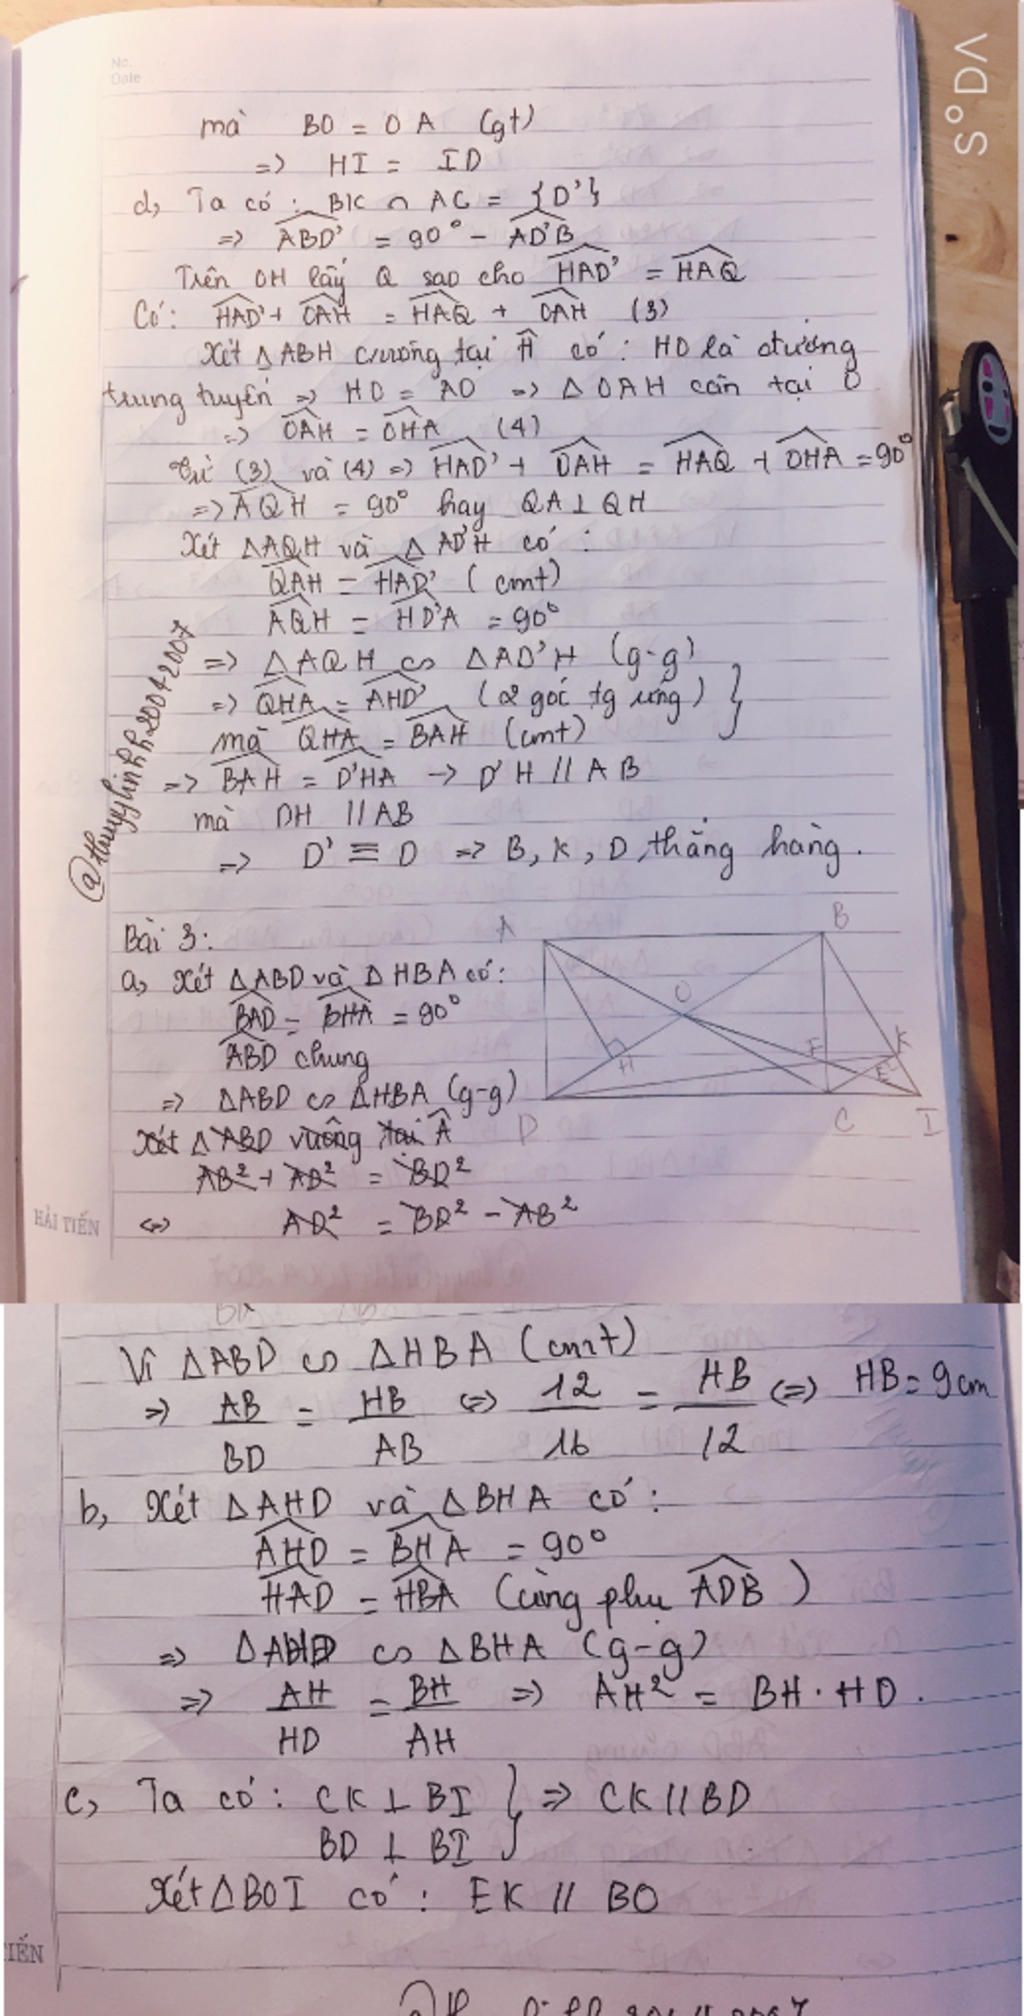 No.
Date
SODA
mà BO = OA (gt)
=> HI = ID
d, Ta có: BK ∩ AC = {D'}
=> ABD' = 90° - AD'B
Trên OH lấy Q sao cho HAD' = HAQ
Có: HAD' + OAH = HAQ + OAH (3)
Xét ΔABH vuông tại H có: HO là đường
trung tuyến => HO = AO => ΔOAH cân tại O
=> OAH = OHA (4)
Từ (3) và (4) => HAD' + OAH = HAQ + OHA = 90°
=> AQH = 90° hay QA ⊥ QH
Xét ΔAQH và ΔAD'H có:
QAH = HAD' (cmt)
AQH = HD'A = 90°
=> ΔAQH ∽ ΔAD'H (g-g)
=> QHA = AHD' (2 góc tg ứng) }
mà QHA = BAH (cmt)
=> BAH = D'HA -> D'H // AB
mà DH // AB
=> D' ≡ D => B, K, D, thẳng hàng.
@thuylinhh20042007
Bài 3:
a, Xét ΔABD và ΔHBA có:
BAD = BHA = 90°
ABD chung
=> ΔABD ∽ ΔHBA (g-g)
Xét ΔABD vuông tại A
AB² + AD² = BD²
<=> AD² = BD² - AB²
A
B
O
H
F
K
E
D
C
I
HẢI TIẾN
Vì ΔABD ∽ ΔHBA (cmt)
=> AB/BD = HB/AB <=> 12/16 = HB/12 <=> HB = 9cm
b, Xét ΔAHD và ΔBHA có:
AHD = BHA = 90°
HAD = HBA (cùng phụ ADB)
=> ΔAHD ∽ ΔBHA (g-g)
=> AH/HD = BH/AH => AH² = BH · HD.
c, Ta có: CK ⊥ BI } => CK // BD
BD ⊥ BI
Xét ΔBOI có: EK // BO
IẾN